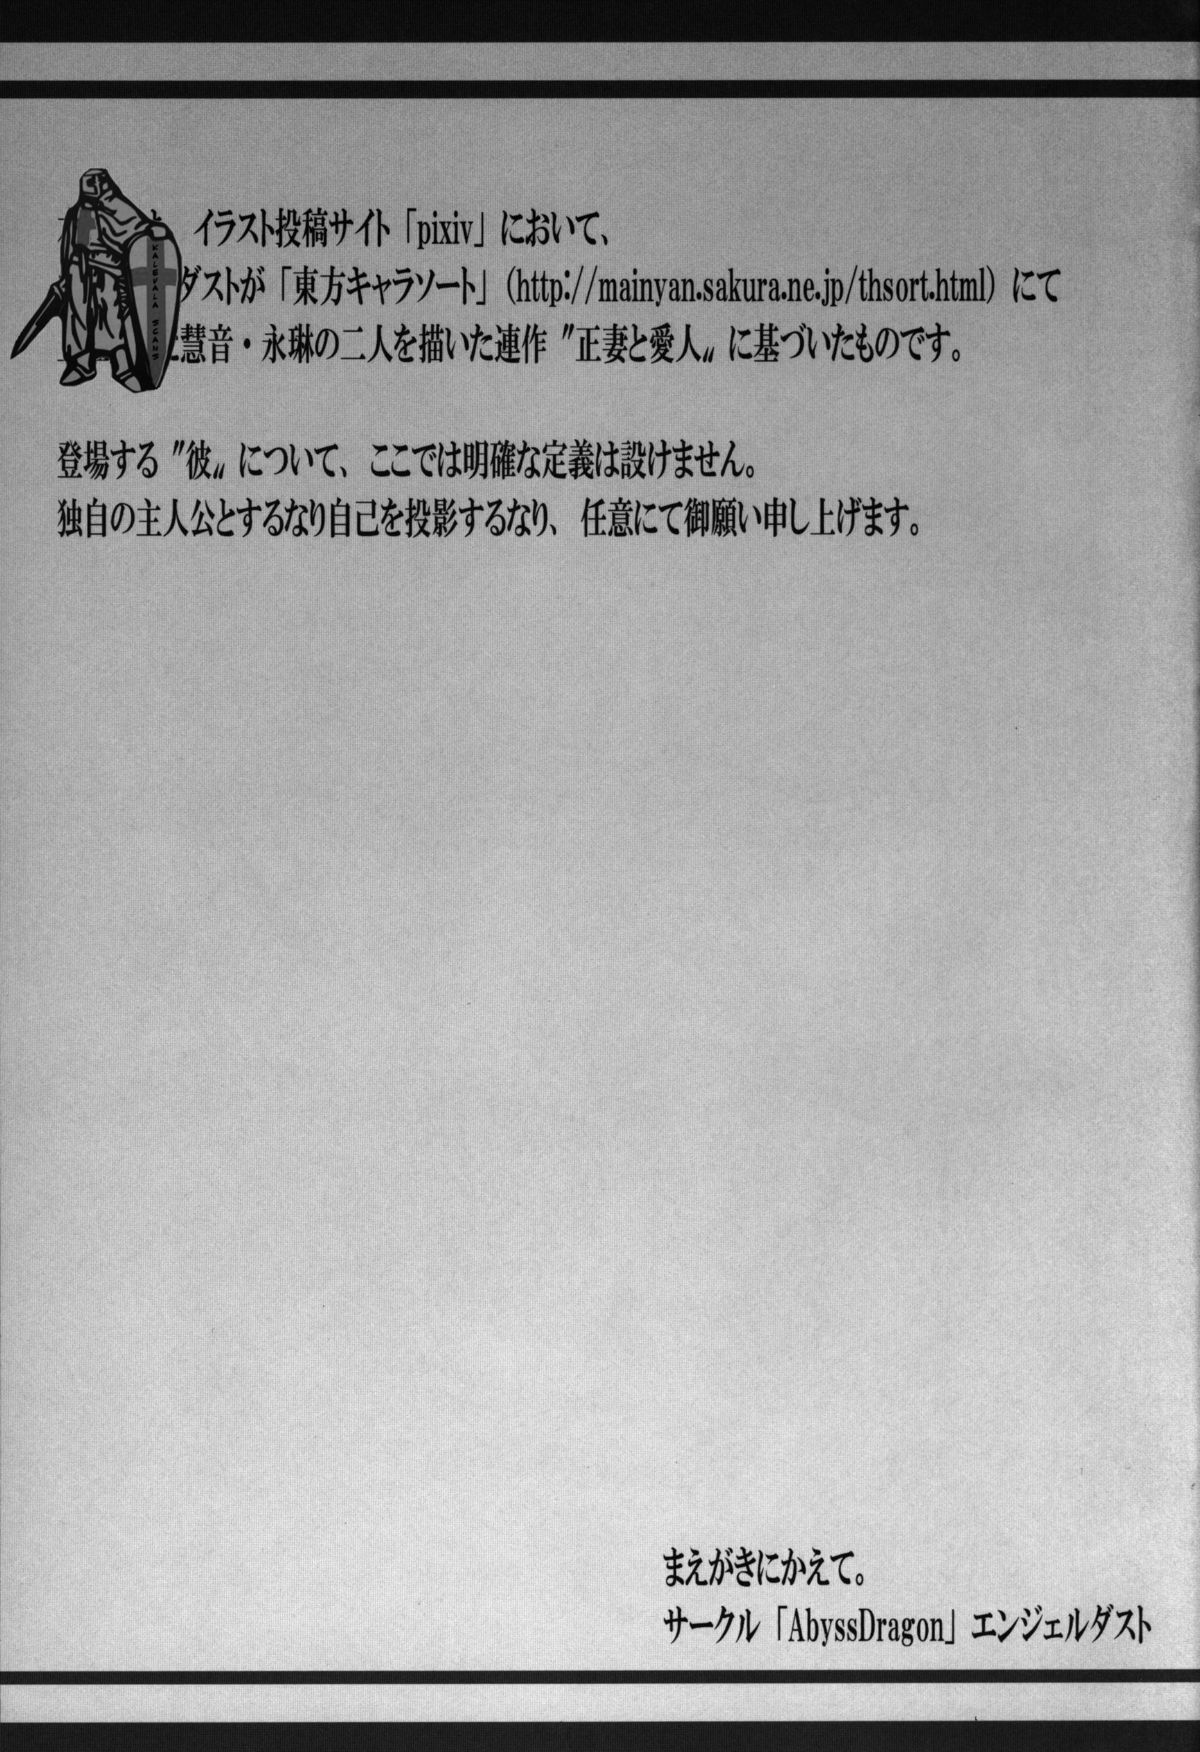 イラスト投稿サイト「pixiv」において、
ダストが「東方キャラソート」(http://mainyan.sakura.ne.jp/thsort.html) にて
慧音・永琳の二人を描いた連作〝正妻と愛人〟に基づいたものです。
登場する〝彼〟について、ここでは明確な定義は設けません。
独自の主人公とするなり自己を投影するなり、任意にて御願い申し上げます。
KALEVALA SCANS
まえがきにかえて。
サークル「AbyssDragon」エンジェルダスト